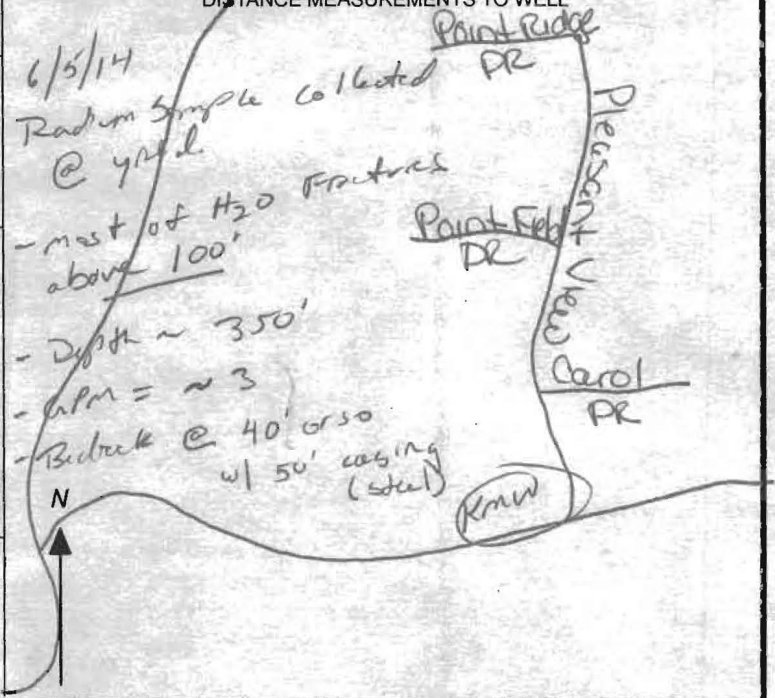 DISTANCE MEASUREMENTS TO WELL
6/5/14
Radium Sample collected
@
- most of H2O Fractures
above 100'
- Depth ~ 350'
- GPM = ~ 3
- Bedrock @ 40' or so
w/ 50' casing
(steel)
N
Point Ridge
DR
Pleasant View
Point Field
DR
Carol
DR
KMW